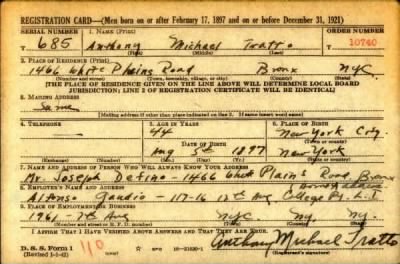 REGISTRATION CARD—(Men born on or after February 17, 1897 and on or before December 31, 1921)
SERIAL NUMBER 1. NAME (Print) ORDER NUMBER
T 685 Anthony Michael Tratto 10740
(First) (Middle) (Last)
2. PLACE OF RESIDENCE (Print)
1466 White Plains Road Bronx NYC
(Number and street) (Town, township, village, or city) (County) (State)
[THE PLACE OF RESIDENCE GIVEN ON THE LINE ABOVE WILL DETERMINE LOCAL BOARD
JURISDICTION; LINE 2 OF REGISTRATION CERTIFICATE WILL BE IDENTICAL]
3. MAILING ADDRESS
Same
[Mailing address if other than place indicated on line 2. If same insert word same]
4. TELEPHONE 5. AGE IN YEARS 6. PLACE OF BIRTH
44 New York City
DATE OF BIRTH (Town or county)
Aug 5th 1897 New York
(Exchange) (Number) (Mo.) (Day) (Yr.) (State or country)
7. NAME AND ADDRESS OF PERSON WHO WILL ALWAYS KNOW YOUR ADDRESS
Mr. Joseph Defino - 1466 White Plains Road, Bronx
8. EMPLOYER'S NAME AND ADDRESS
Alfonso Gaudio - 117-16 12th Av College P. L.I.
9. PLACE OF EMPLOYMENT OR BUSINESS
1961 - 7th Av NYC NY. NY
(Number and street or R. F. D. number) (Town) (County) (State)
I AFFIRM THAT I HAVE VERIFIED ABOVE ANSWERS AND THAT THEY ARE TRUE.
D. S. S. Form 1
(Revised 1-1-42) 110 Anthony Michael Tratto